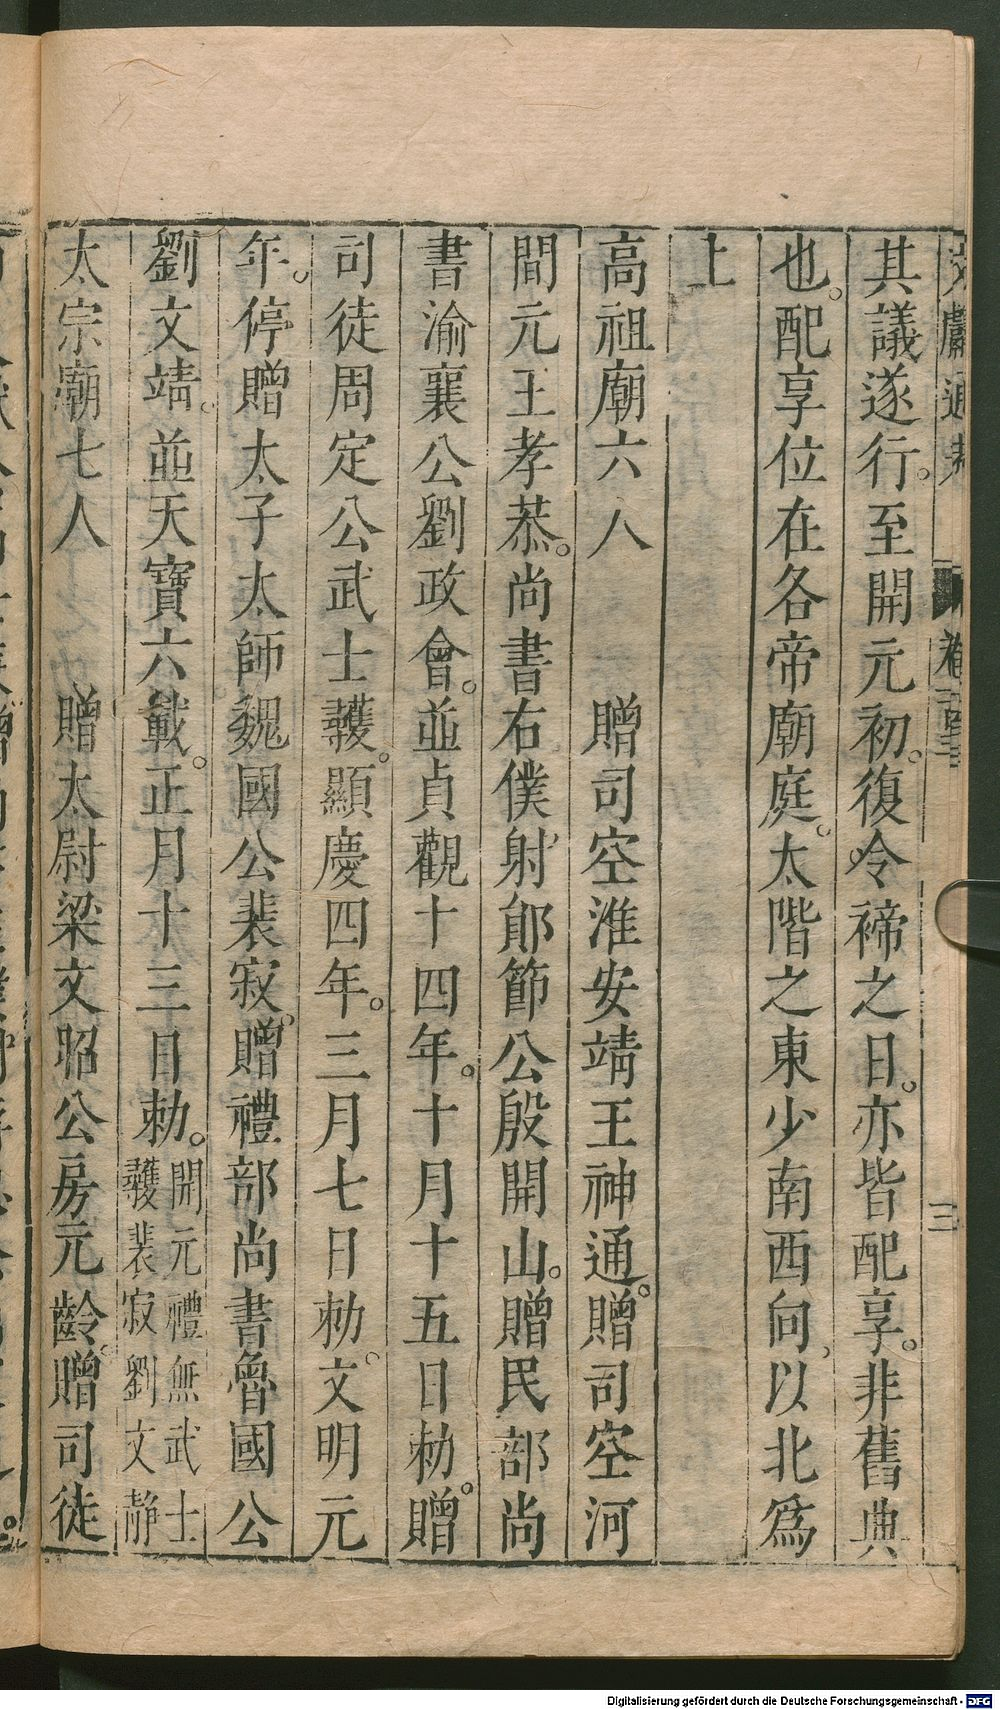 其議遂行。至開元初。復令禘之日。亦皆配享。非舊典
也。配享位在各帝廟庭。太階之東少南西向、以北爲
上
高祖廟六人　贈司空淮安靖王神通。贈司空河
間元王孝恭。尚書右僕射鄖節公殷開山。贈民部尚
書渝襄公劉政會。並貞觀十四年。十月十五日勑。贈
司徒周定公武士彠。顯慶四年。三月七日勑。文明元
年。停贈太子太師魏國公裴寂。贈禮部尚書魯國公
劉文靖。並天寶六載。正月十三日勑。開元禮無武士彠裴寂劉文静
太宗廟七人　贈太尉梁文昭公房元齡。贈司徒
文獻通考
卷
三
Digitalisierung gefördert durch die Deutsche Forschungsgemeinschaft - DFG